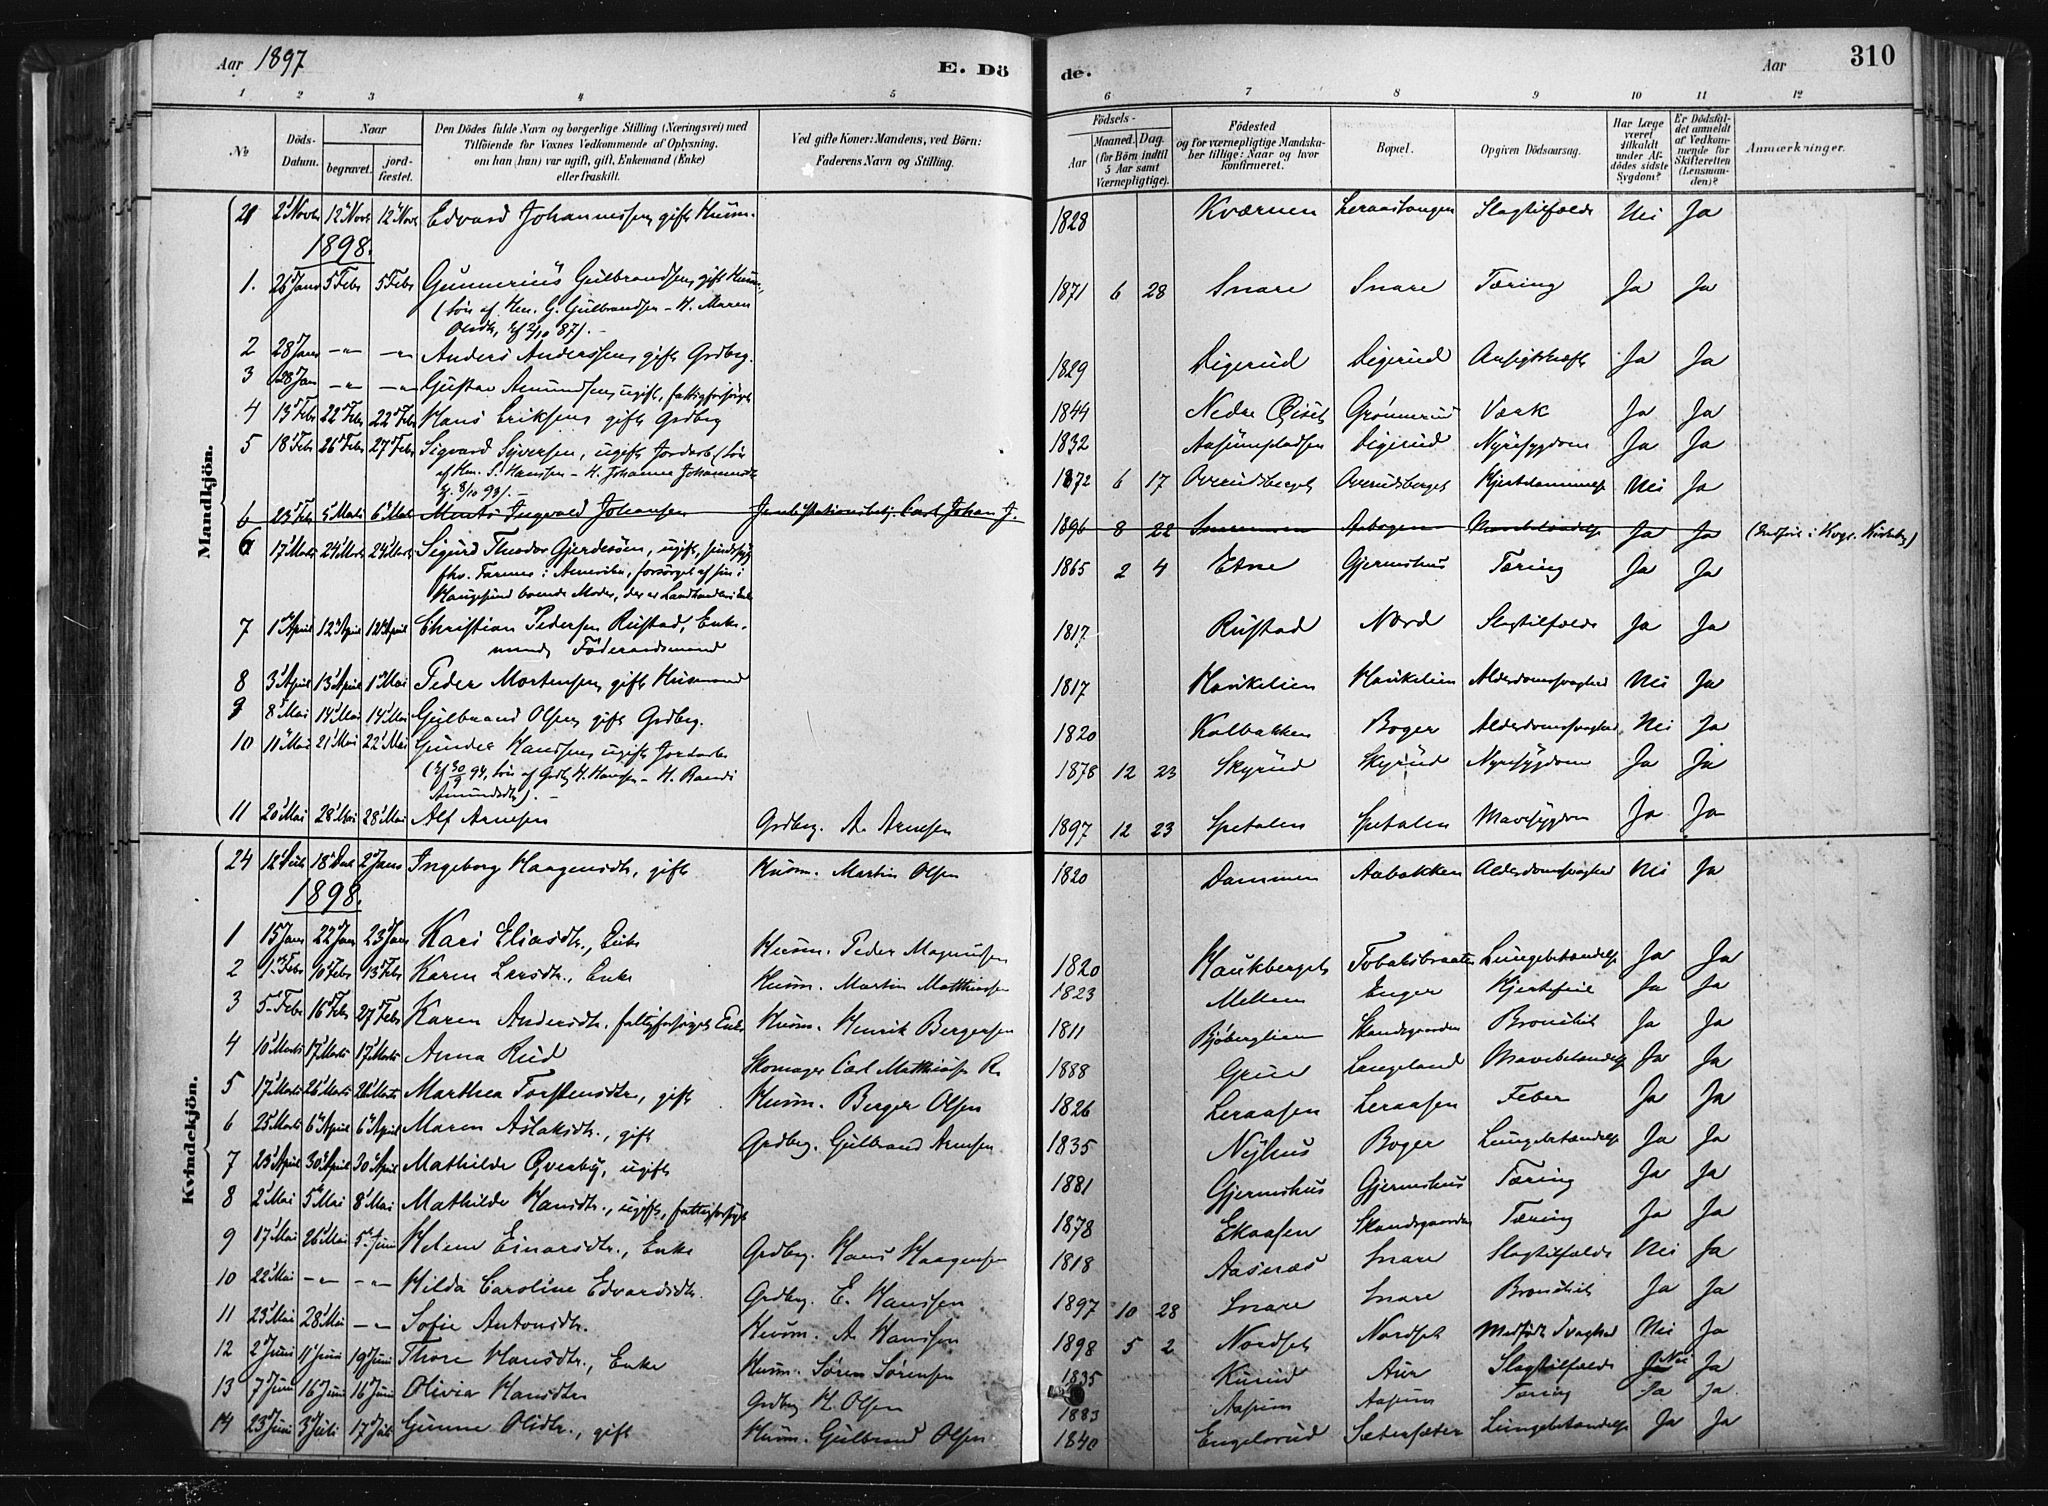 Aar 1897
E. Dö
de.
Aar
310
1 2 3 4 5 6 7 8 9 10 11 12
No
Döds-Datum.
Naar
begravet.
jord-fæstet.
Den Dödes fulde Navn og borgerlige Stilling (Næringsvei) med
Tilföiende for Voxnes Vedkommende af Oplysning,
om han (hun) var ugift, gift, Enkemand (Enke)
eller fraskilt.
Ved gifte Koner: Mandens, ved Börn:
Faderens Navn og Stilling.
Födsels-
Aar
Maaned. Dag.
(for Börn indtil
5 Aar samt
Værnepligtige).
Födested
og for værnepligtige Mandska-
ber tillige: Naar og hvor
konfirmeret.
Bopæl.
Opgiven Dödsaarsag.
Har Læge
været
tilkaldt
under Af-
dödes sidste
Sygdom?
Er Dödsfal-
det anmeldt
af Vedkom-
mende for
Skifteretten
(Lensman-
den)?
Anmærkninger.
Mandkjön.
21 2 Novbr 12 Novb 12 Novb Edvard Johannessen, gift Husm. 1828 Kværnen Leraastangen Slagtilfælde Nei Ja
1898.
1. 26 Janr 5 Febr 5 Febr Gunnerius Gulbrandsen, gift Husm. 1871 6 28 Snare Snare Tæring Ja Ja
(Søn af Hm. G. Gulbrandsen - H. Maren
Olsdtr, kf 2/10 87). -
2 28 Janr -"- -"- Anders Anderssen, gift Grdbrg. 1829 Digerud Digerud Ansigtskræft Ja Ja
3 28 Jan -"- -"- Gustav Amundsen, ugift, fattigforsörget 1844 Nedre Grønnerud Værk Ja Ja
4 13 Febr 22 Febr 22 Febr Hans Eriksen gift Grdbrg 1832 Aasumpladsen Digerud Nyresygdom Ja Ja
5 18 Febr 26 Febr 27 Febr Sigvard Syversen, ugift Jordarb. (Søn 1872 6 17 Overudsberget Overudsberget Nei Ja
af Hm. S. Hanssen - H. Johanne Johannesdt.
kf. 8/10 93). -
6 23 Feb 5 Marts 6 Mart Ingvald Johansen Carl Johan J. 1896 8 22 Ja Ja
6 17 Marts 24 Marts 24 Marts Sigurd Theodor Gjerdesöen, ugift, 1865 2 4 Etne Gjermshus Tæring Ja Ja
fhv. Farmer i Amerika, forsörget af sin i
Haugesund boende Moder, der er Landhandleri Enke
7 1 April 12 April 12 April Christian Pedersen Rustad, Enke- 1817 Rustad Nord Slagtilfælde Ja Ja
mand, Föderaadsmand
8 3 April 13 April 1 Mai Peder Mortensen gift Husmand 1817 Haukelien Haukelien Alderdomssvaghed Nei Ja
9 8 Mai 14 Mai 14 Mai Gulbrand Olsen gift Grdbrg. 1820 Kolbakken Boger Alderdomssvaghed Nei Ja
10 11 Mai 21 Mai 22 Mai Gunder Hanssen, ugift Jordarb 1878 12 23 Skyrud Skyrud Nyresygdom Ja Ja
(kf 30/9 94, Søn af Grdb. H. Hanssen - H. Randi
Amundsdtr). -
11 20 Mai 28 Mai 28 Mai Alf Arnesen Grdbrg. A. Arnesen 1897 12 23 Spetalen Spetalen Mavesygdom Ja Ja
Kvindekjön.
24 12 18 2 Janr Ingeborg Haagensdtr, gift Husm. Martin Olsen 1820 Dammen Aabakken Alderdomssvaghed Nei Ja
1898.
1 15 Janr 22 Janr 23 Janr Kari Eliasdtr., Enke Husm. Peder Magnussen 1820 Haukberget Tobaksbraaten Lungebetændelse Ja Ja
2 1 Febr 10 Febr 13 Febr Karen Larsdtr., Enke Husm. Martin Matthissen 1823 Mellem Enger Hjertefeil Ja Ja
3 5 Febr 16 Febr 27 Febr Karen Andersdtr. fattigforsörget Enke Husm. Henrik Bergersen 1811 Bjöberglien Skandsgaarden Bronchit Ja Ja
4 10 Marts 17 Marts 17 Marts Anna Rud Skomager Carl Matthiass R. 1888 Grue Langeland Mavebetændelse Ja Ja
5 17 Marts 26 Marts 26 Marts Marthea Torstensdtr, gift Husm. Berger Olsen 1826 Leraasen Leraasen Feber Ja Ja
6 25 Marts 6 April 6 April Maren Aslaksdtr., gift Grdbrg. Gulbrand Arnesen 1835 Nyhus Boger Lungebetændelse Ja Ja
7 23 April 30 April 30 April Mathilde Qverby, ugift 1881 Gjermshus Gjermshus Tæring Ja Ja
8 2 Mai 5 Mai 8 Mai Mathilde Hansdtr., ugift, fattigforsörget 1878 Ekaasen Skandsgaarden Tæring Ja Ja
9 17 Mai 26 Mai 5 Juni Helene Einarsdtr., Enke Grdbrg. Hans Haagensen 1818 Aasnæs Snare Slagtilfælde Nei Ja
10 22 Mai -"- -"- Hilda Caroline Edvardsdtr. Grdbrg. E. Hanssen 1897 10 28 Snare Snare Bronchit Ja Ja
11 23 Mai 28 Mai -"- Sofie Antonsdtr. Husm. A. Hanssen 1898 5 2 Nordset Nordset Medfödt Svaghed Nei Ja
12 2 Juni 11 Juni 19 Juni Thore Hansdtr., Enke Husm. Sören Sörensen 1835 Kurud Aur Slagtilfælde Nei Ja
13 7 Juni 16 Juni 16 Juni Olivia Hansdtr Grdbrg H. Olsen 1883 Aasum Aasum Tæring Ja Ja
14 23 Juni 3 Juli 17 Juli Gunne Olsdtr., gift Husm. Gulbrand Olsen 1840 Engelsrud Sætersæter Lungebetændelse Ja Ja